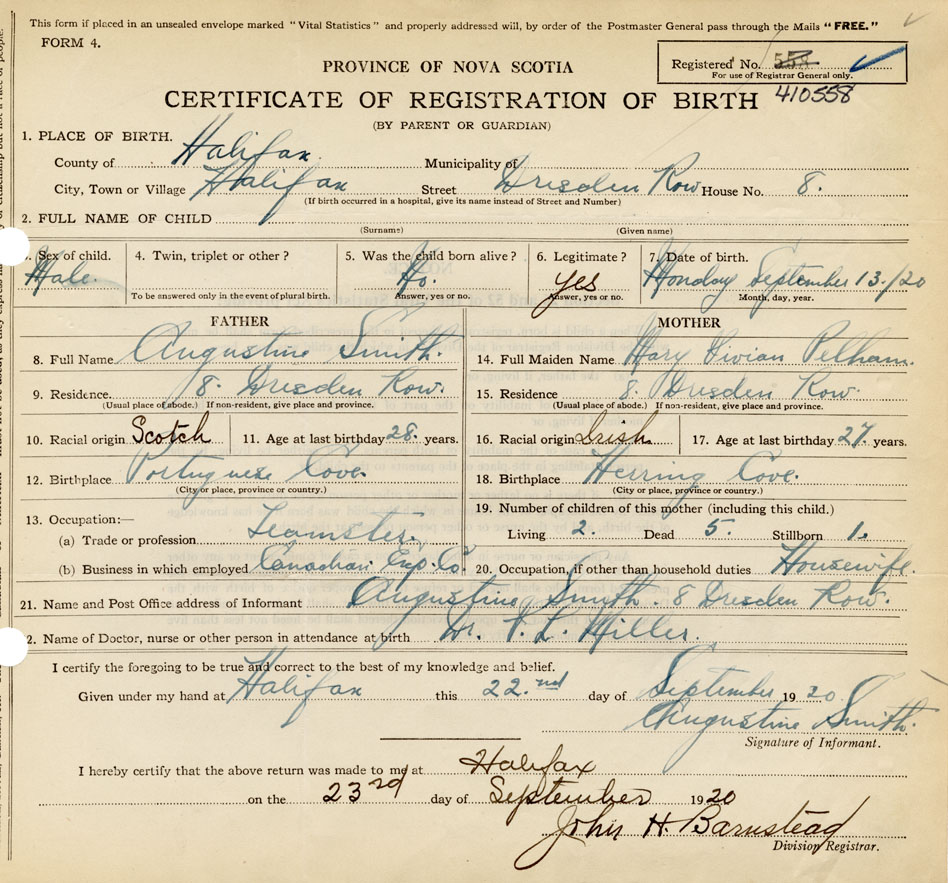 This form if placed in an unsealed envelope marked "Vital Statistics" and properly addressed will, by order of the Postmaster General pass through the Mails "FREE."
FORM 4.
Registered No. 558
For use of Registrar General only.
410558
PROVINCE OF NOVA SCOTIA
CERTIFICATE OF REGISTRATION OF BIRTH
(BY PARENT OR GUARDIAN)
1. PLACE OF BIRTH.
County of Halifax. Municipality of
City, Town or Village Halifax Street Dresden Row House No. 8.
(If birth occurred in a hospital, give its name instead of Street and Number)
2. FULL NAME OF CHILD
(Surname) (Given name)
Sex of child. 4. Twin, triplet or other? 5. Was the child born alive? 6. Legitimate? 7. Date of birth.
Male. No. yes Monday September 13./20
To be answered only in the event of plural birth. Answer, yes or no. Answer, yes or no. Month, day, year.
FATHER MOTHER
8. Full Name Augustine Smith. 14. Full Maiden Name Mary Vivian Pelham.
9. Residence 8. Dresden Row. 15. Residence 8. Dresden Row.
(Usual place of abode.) If non-resident, give place and province. (Usual place of abode.) If non-resident, give place and province.
10. Racial origin Scotch 11. Age at last birthday 28. years. 16. Racial origin Irish 17. Age at last birthday 27 years.
12. Birthplace Portuguese Cove. 18. Birthplace Herring Cove.
(City or place, province or country.) (City or place, province or country.)
13. Occupation:— 19. Number of children of this mother (including this child.)
(a) Trade or profession Teamster. Living 2. Dead 5. Stillborn 1.
(b) Business in which employed Canadian Exp. Co 20. Occupation, if other than household duties Housewife.
21. Name and Post Office address of Informant Augustine Smith. 8 Dresden Row.
2. Name of Doctor, nurse or other person in attendance at birth Dr. Miller.
I certify the foregoing to be true and correct to the best of my knowledge and belief.
Given under my hand at Halifax this 22.nd day of September 1920
Augustine Smith.
Signature of Informant.
I hereby certify that the above return was made to me at Halifax
on the 23rd day of September 1920
John H. Barnstead
Division Registrar.